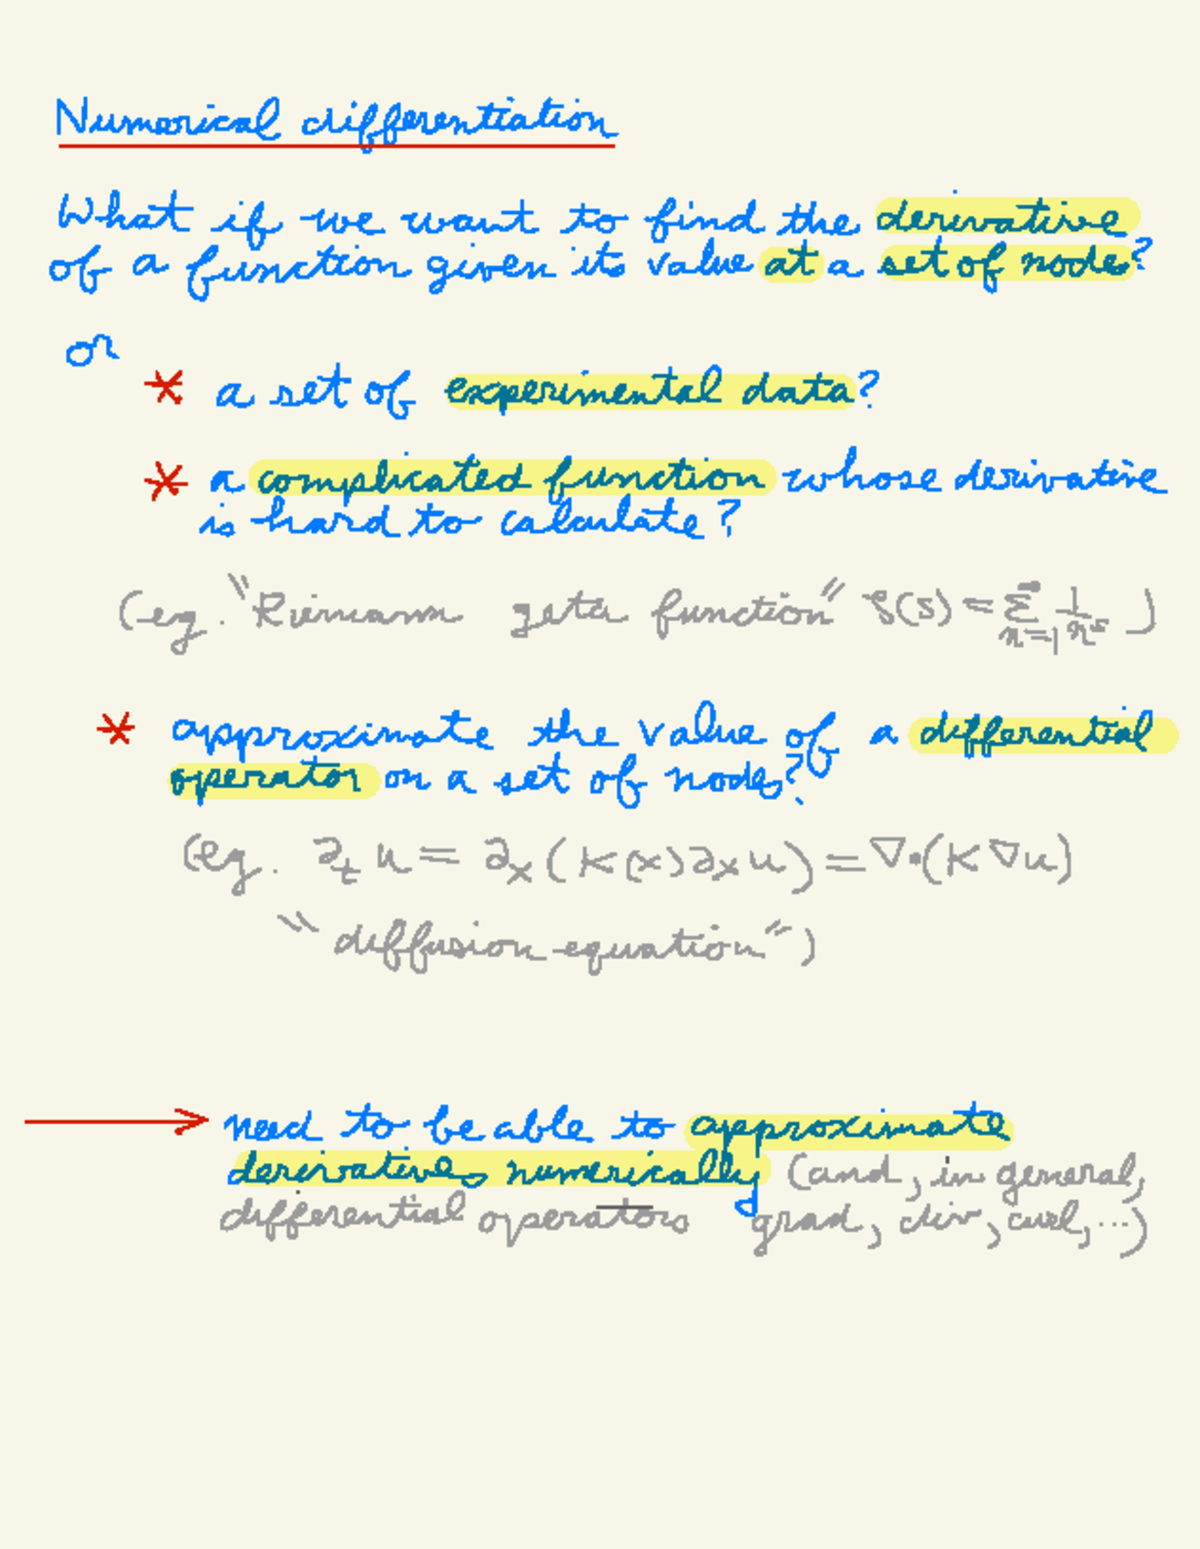 Numerical differentiation
What if we want to find the derivative
of a function given its value at a set of nodes?
or
* a set of experimental data?
* a complicated function whose derivative
is hard to calculate?
(eg. "Riemann zeta function" ζ(s) = ∑_{n=1}^{∞} 1/n^s )
* approximate the value of a differential
operator on a set of nodes?
(eg. ∂_t u = ∂_x (K(x) ∂_x u) = ∇·(K∇u)
"diffusion equation")
→ need to be able to approximate
derivatives numerically (and, in general,
differential operators grad, div, curl, ...)